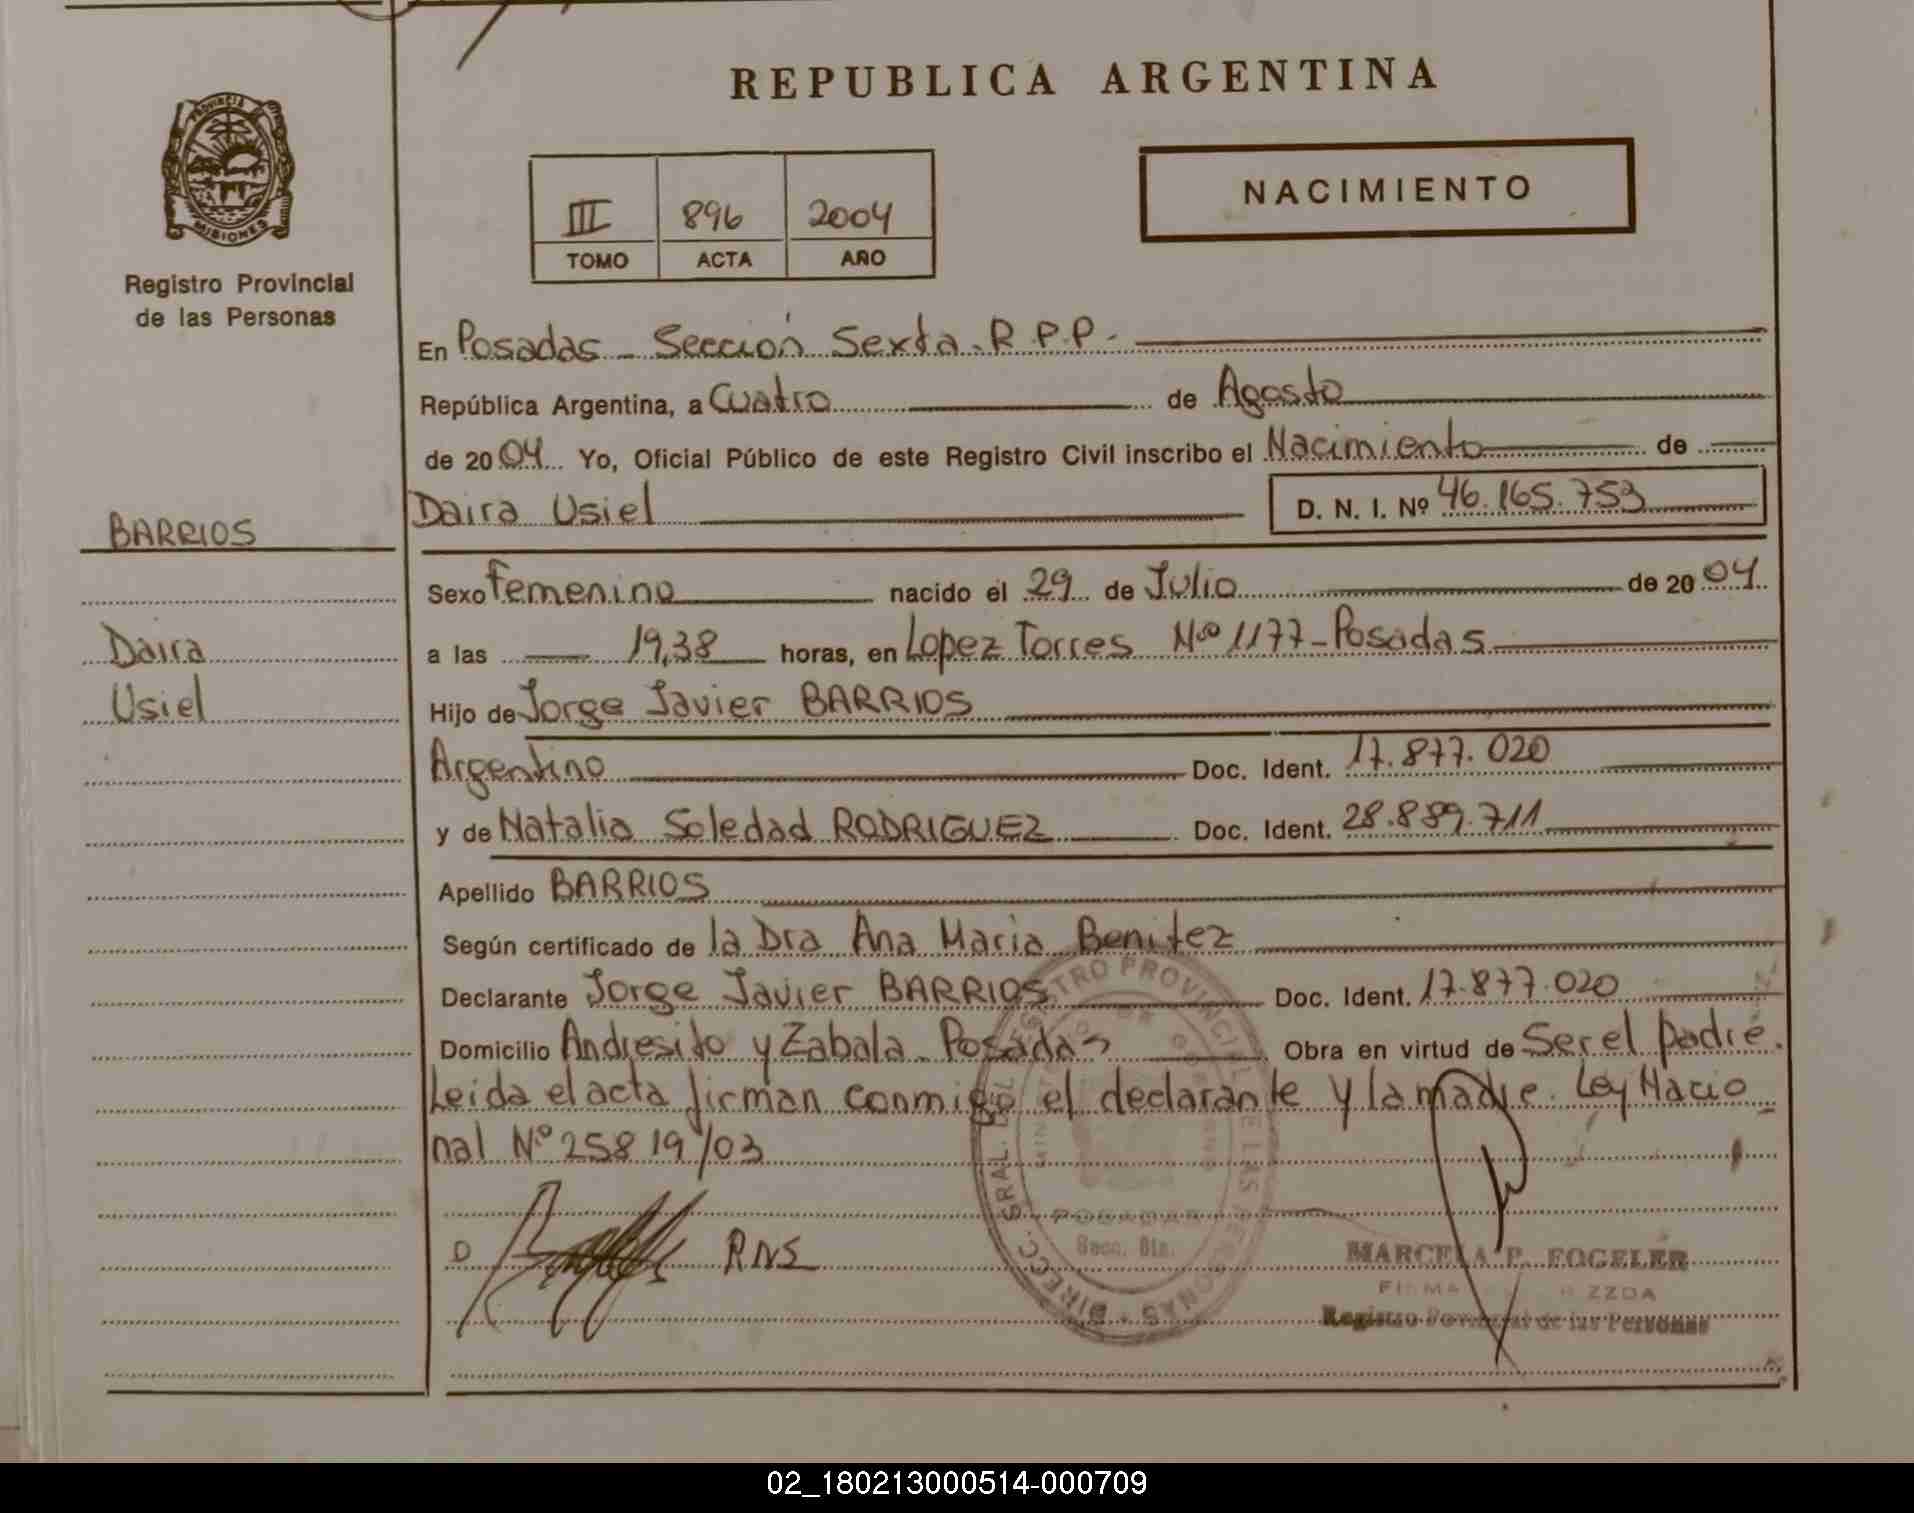 REPUBLICA ARGENTINA
PROVINCIA
MISIONES
Registro Provincial
de las Personas
III 896 2004
TOMO ACTA AÑO
NACIMIENTO
En Posadas - Sección Sexta. R.P.P.-
República Argentina, a Cuatro de Agosto
de 2004 Yo, Oficial Público de este Registro Civil inscribo el Nacimiento de
Daira Usiel D. N. I. Nº 46.165.753
BARRIOS
Daira
Usiel
Sexo Femenino nacido el 29 de Julio de 2004
a las 19,38 horas, en Lopez Torres Nº 1177-Posadas
Hijo de Jorge Javier BARRIOS
Argentino Doc. Ident. 17.877.020
y de Natalia Soledad RODRIGUEZ Doc. Ident. 28.889.711
Apellido BARRIOS
Según certificado de la Dra Ana Maria Benitez
Declarante Jorge Javier BARRIOS Doc. Ident. 17.877.020
Domicilio Andresito y Zabala. Posadas Obra en virtud de Ser el padre.
Leida el acta firman conmigo el declarante y la madre. Ley Nacio_
nal Nº 25819/03
DIRECC. GRAL. DEL REGISTRO PROVINCIAL DE LAS PERSONAS
POSADAS
Secc. 6ta.
D RNS
MARCELA P. FOGELER
Registro Provincial de las Personas
02_180213000514-000709